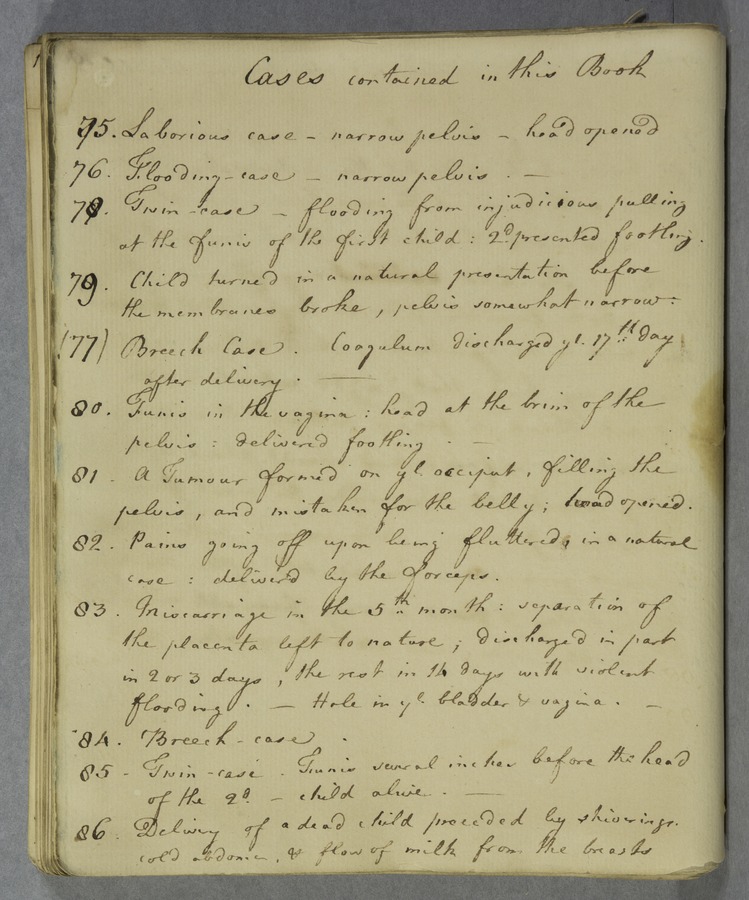 Cases contained in this Book
75. Laborious case – narrow pelvis – head opened
76. Flooding-case – narrow pelvis . —
78. Twin-case – flooding from injudicious pulling
at the funis of the first child : 2d. presented footling.
79. Child turned in a natural presentation before
the membranes broke, pelvis somewhat narrow :
(77) Breech Case . Coagulum discharged ye. 17th day
after delivery . —
80. Funis in the vagina : head at the brim of the
pelvis : delivered footling . —
81. A Tumour formed on ye. occiput, filling the
pelvis, and mistaken for the belly; head opened.
82. Pains going off upon being fluttered, in a natural
case : deliver'd by the forceps.
83. Miscarriage in the 5th. month : separation of
the placenta left to nature; discharged in part
in 2 or 3 days, the rest in 14 days with violent
flooding . — Hole in ye. bladder & vagina . —
84. Breech-case .
85 - Twin-case . Funis several inches before the head
of the 2d. – child alive . —
86. Delivery of a dead child preceded by shiverings.
cold abdomen, & flow of milk from the breasts